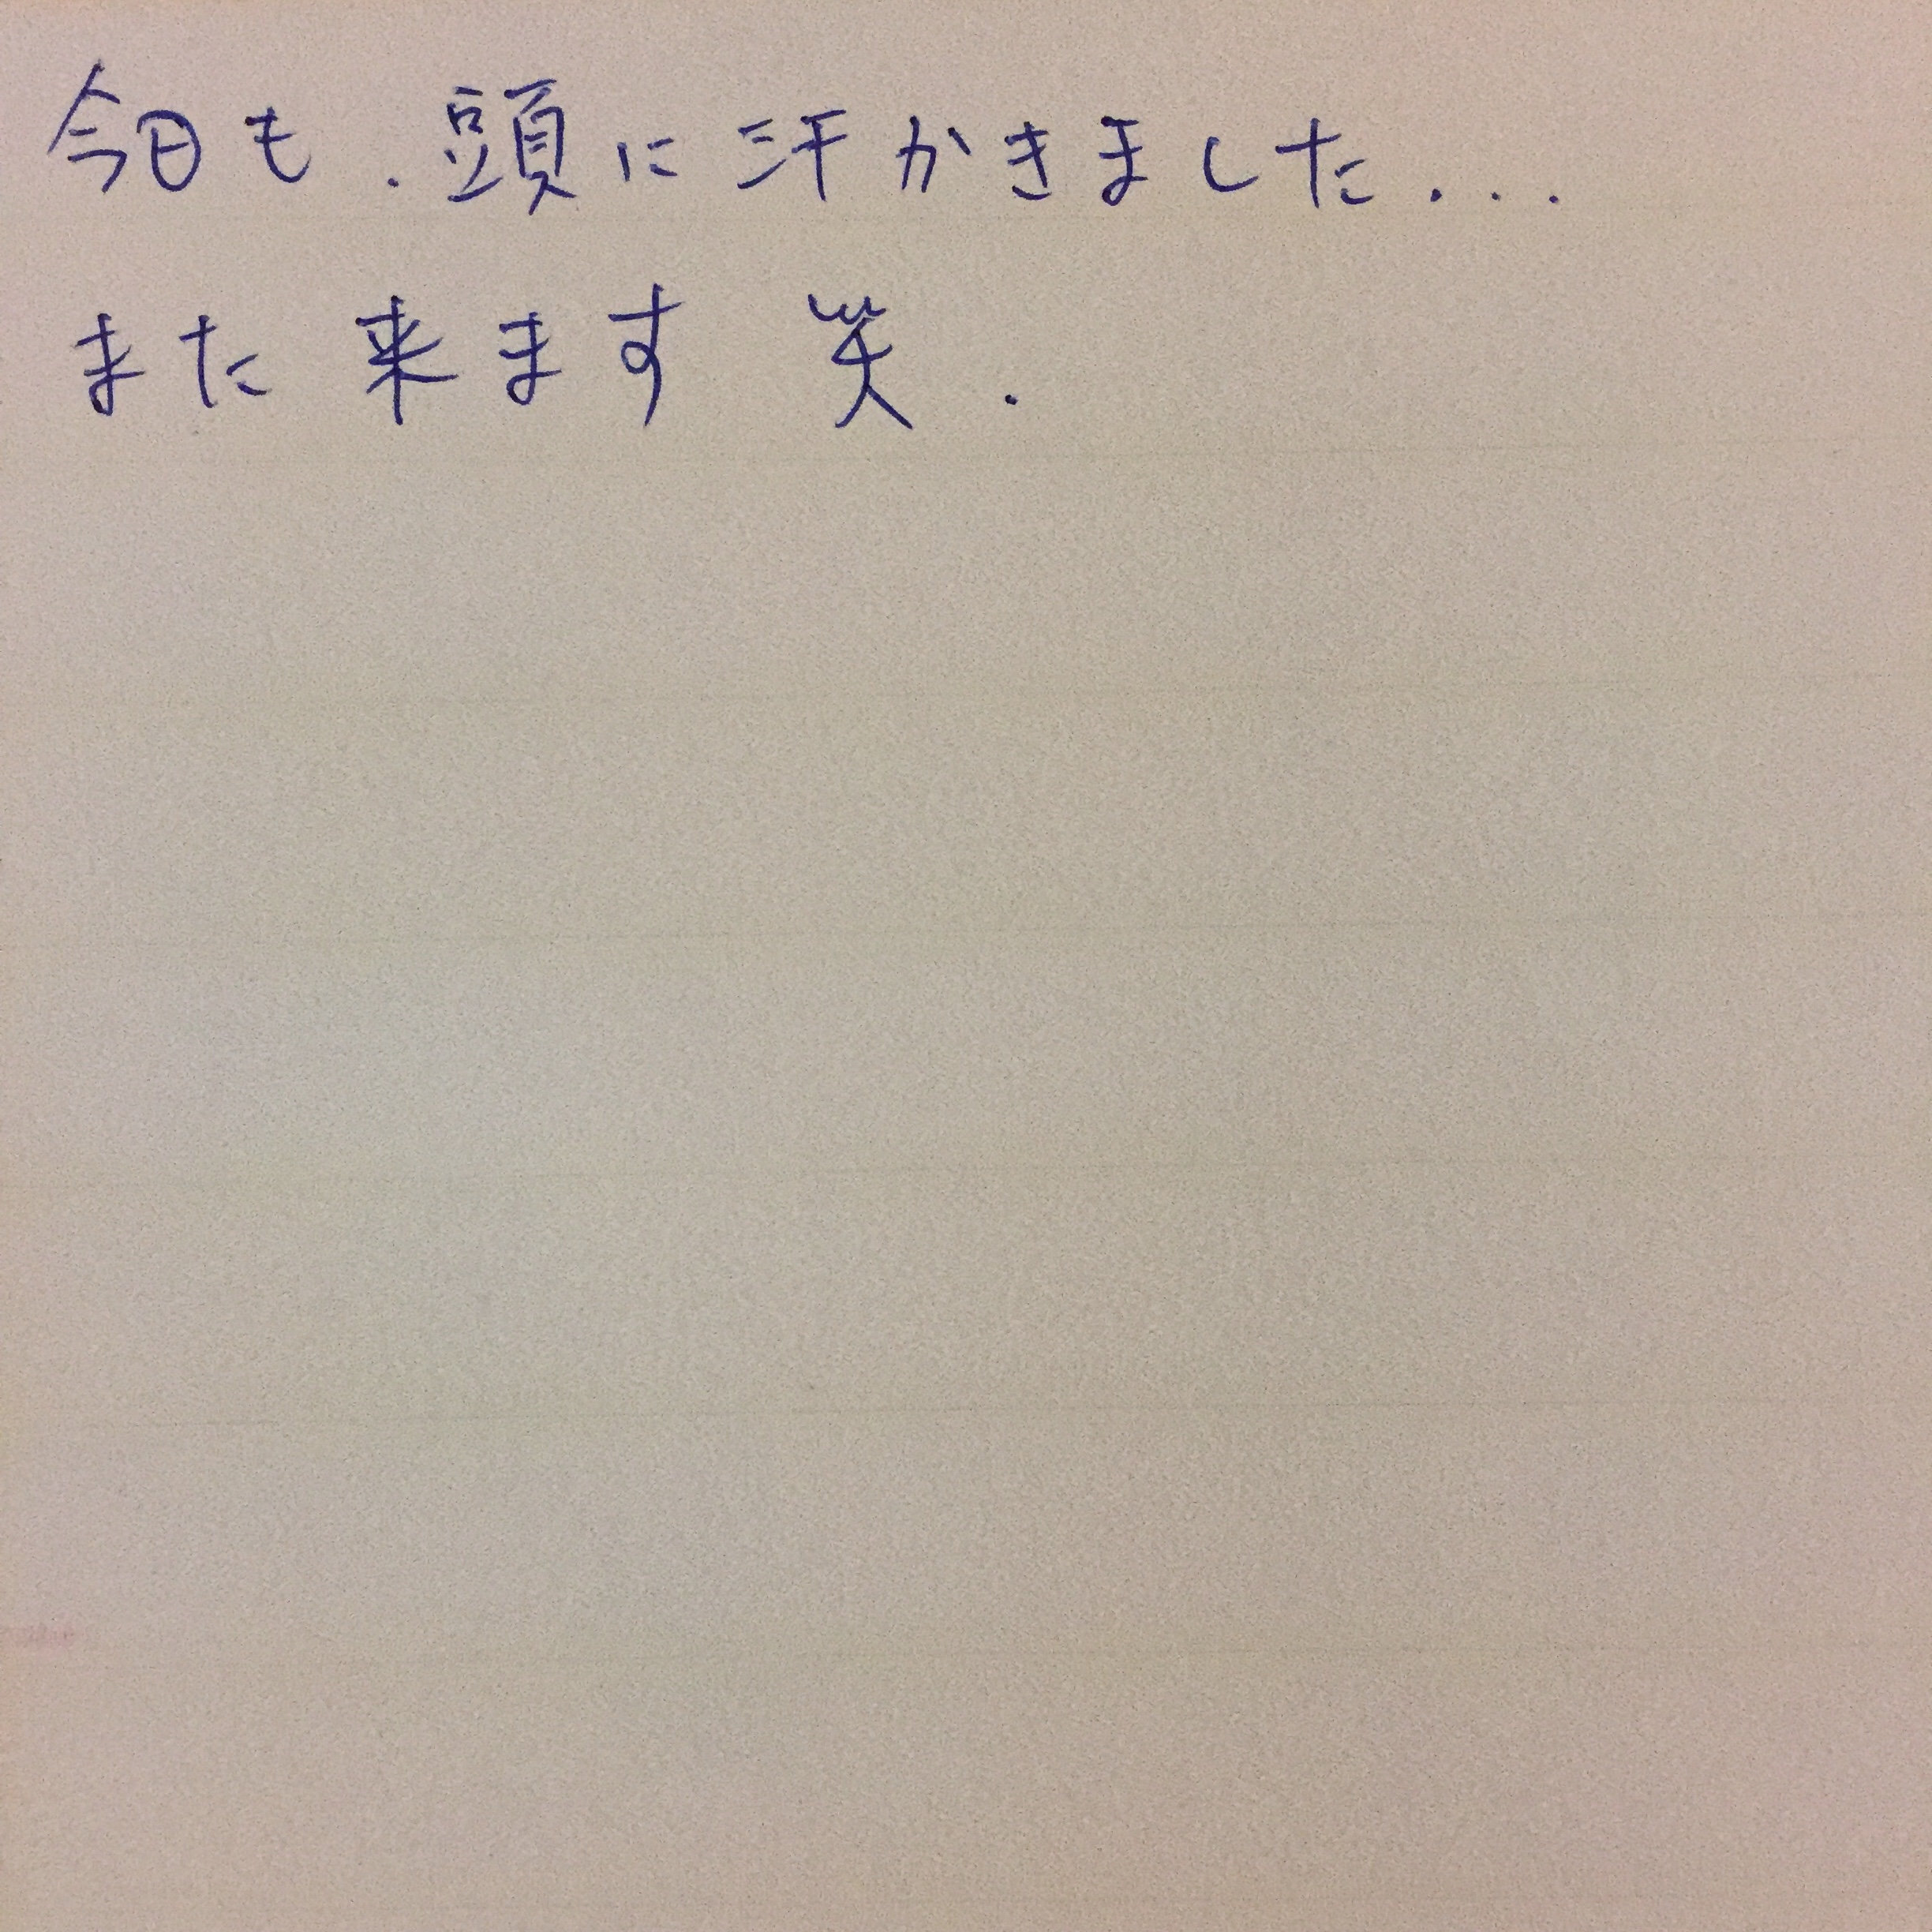 今日も.頭に汗かきました...
また来ます 笑.